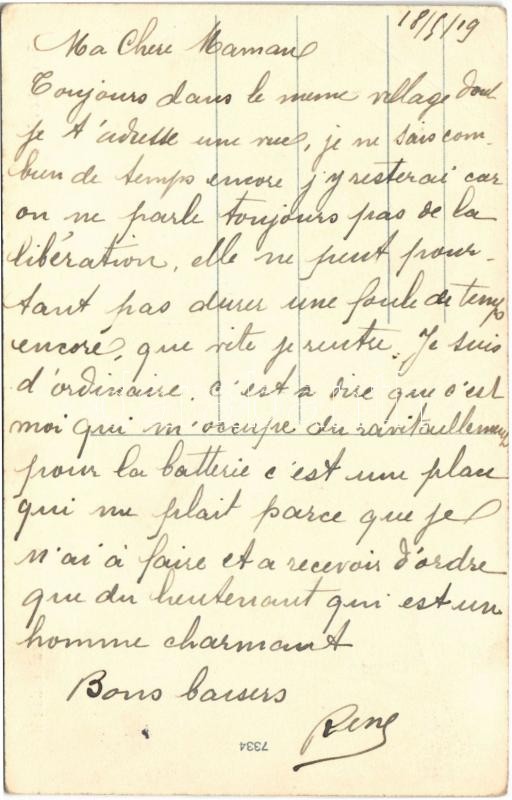 18/5/19
Ma Chere Maman
Toujours dans le meme village dont
je t'adresse une vue, je ne sais com-
bien de temps encore j'y resterai car
on ne parle toujours pas de la
libération, elle ne peut pour-
tant pas durer une foule de temps
encore, que vite je rentre. Je suis
d'ordinaire, c'est a dire que c'est
moi qui m'occupe du ravitaillement
pour la batterie c'est une place
qui me plait parce que je
n'ai à faire et a recevoir d'ordre
que du lieutenant qui est un
homme charmant
Bons baisers
René
7334